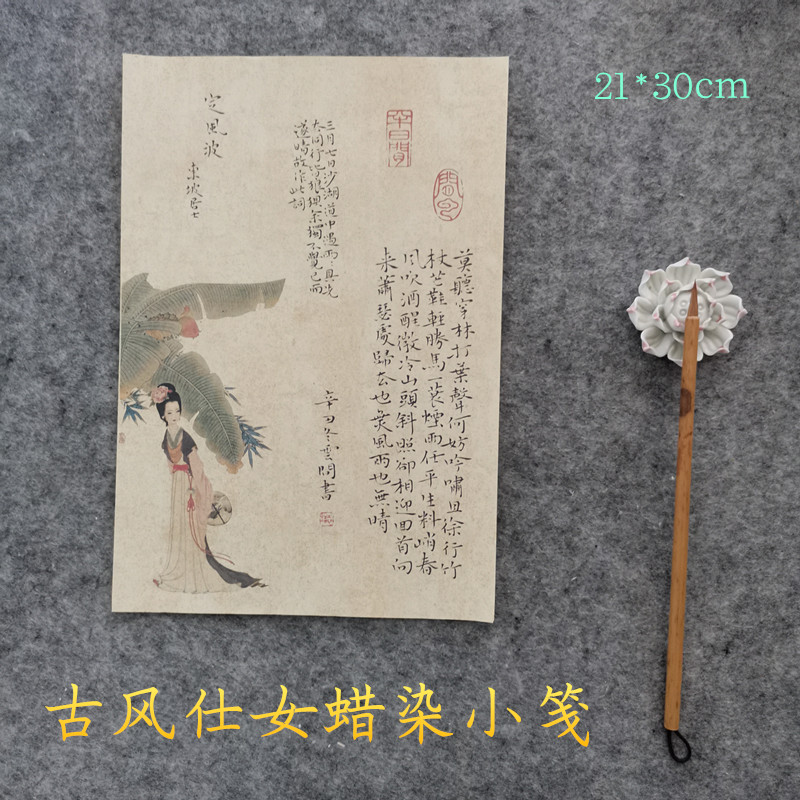 21*30cm
半日閒
莫聽穿林打葉聲何妨吟嘯且徐行竹
杖芒鞋輕勝馬一蓑煙雨任平生料峭春
風吹酒醒微冷山頭斜照卻相迎回首向
來蕭瑟處歸去也無風雨也無晴
三月七日沙湖道中遇雨:具先
去同行皆狼狽余獨不覺已而
遂晴故作此詞
定風波
東坡居士
辛丑冬雲問書
古风仕女蜡染小笺